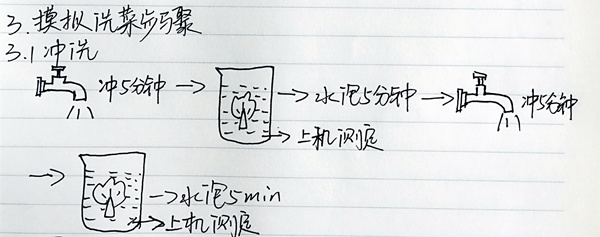 3.摸拟洗菜步骤
3.1 冲洗
冲5分钟 → → 水泡5分钟 → 冲5分钟
→上机测定
→ →水泡5min
→上机测定